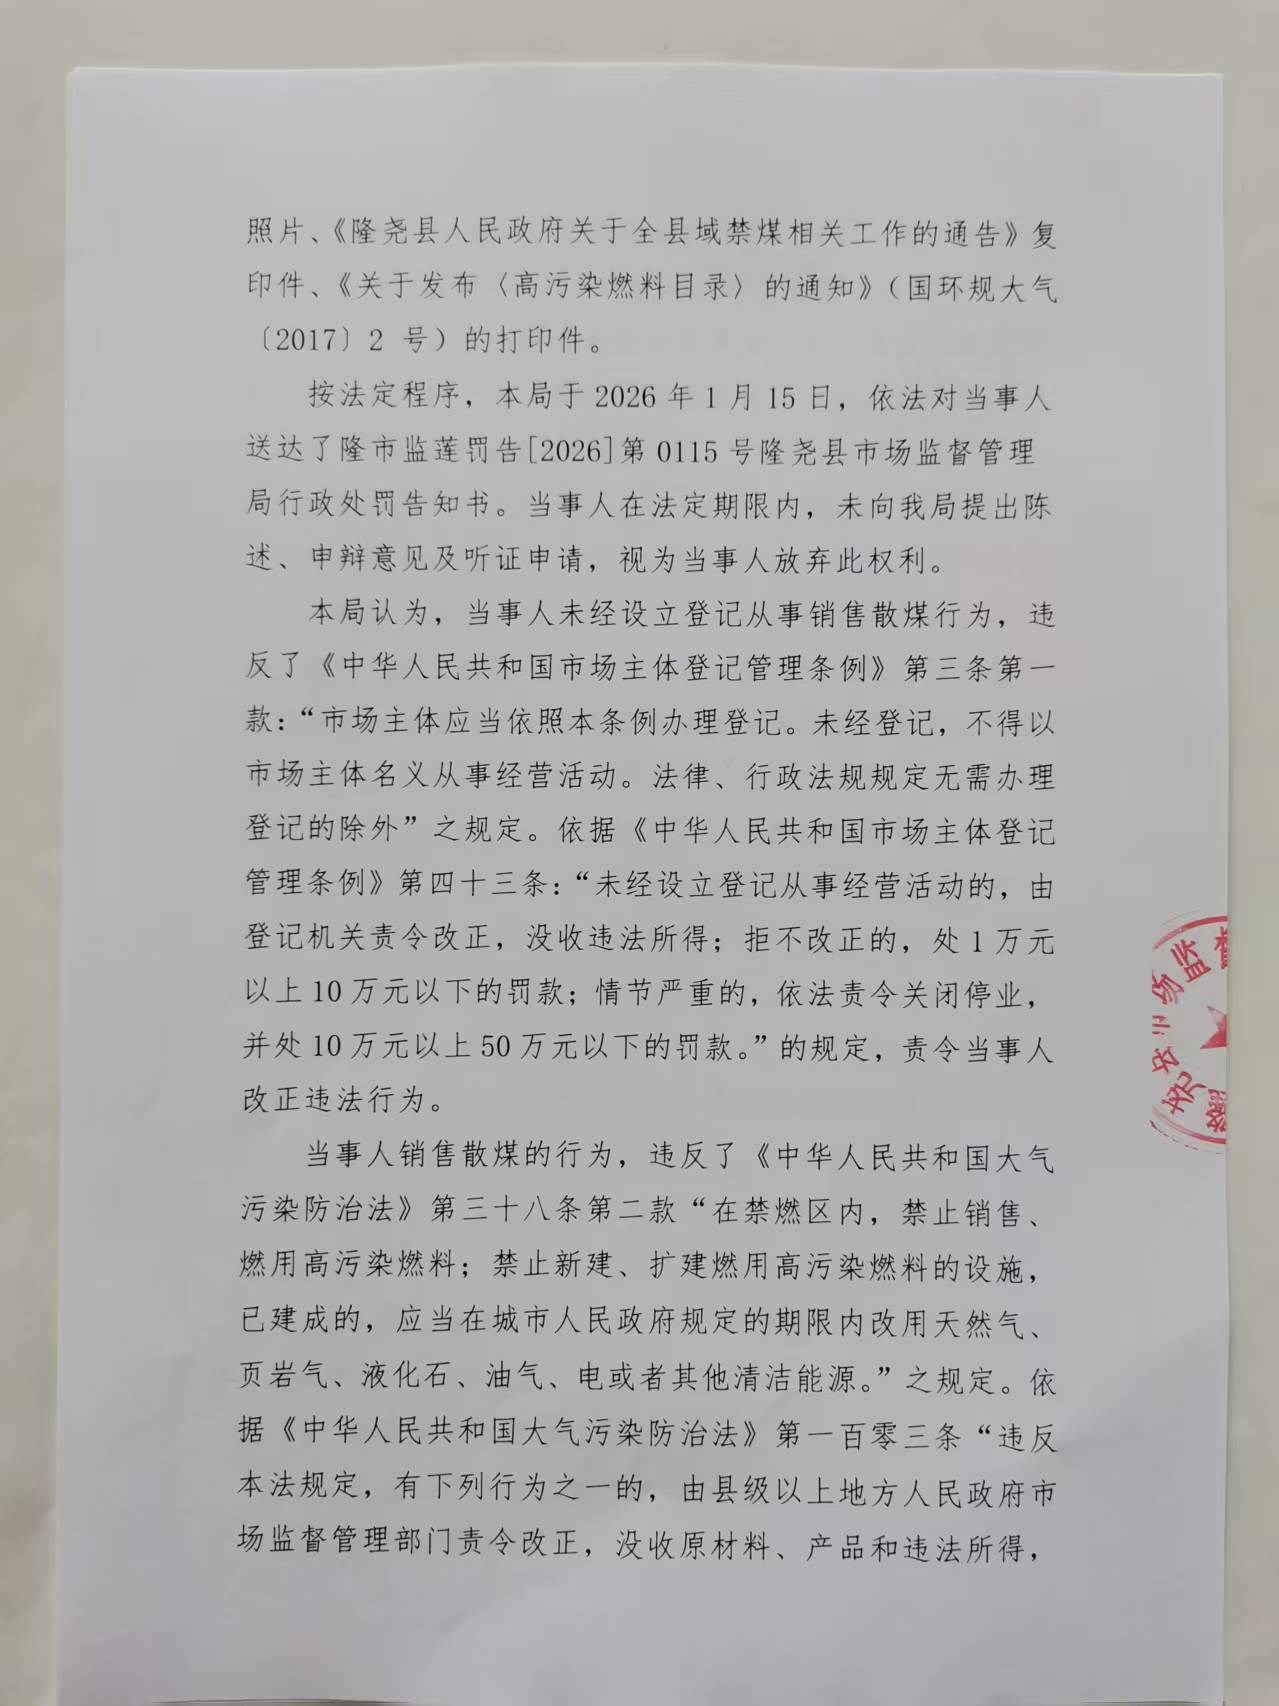 照片、《隆尧县人民政府关于全县域禁煤相关工作的通告》复
印件、《关于发布〈高污染燃料目录〉的通知》（国环规大气
〔2017〕2 号）的打印件。
按法定程序，本局于 2026 年 1 月 15 日，依法对当事人
送达了隆市监莲罚告[2026]第 0115 号隆尧县市场监督管理
局行政处罚告知书。当事人在法定期限内，未向我局提出陈
述、申辩意见及听证申请，视为当事人放弃此权利。
本局认为，当事人未经设立登记从事销售散煤行为，违
反了《中华人民共和国市场主体登记管理条例》第三条第一
款：“市场主体应当依照本条例办理登记。未经登记，不得以
市场主体名义从事经营活动。法律、行政法规规定无需办理
登记的除外”之规定。依据《中华人民共和国市场主体登记
管理条例》第四十三条：“未经设立登记从事经营活动的，由
登记机关责令改正，没收违法所得；拒不改正的，处 1 万元
以上 10 万元以下的罚款；情节严重的，依法责令关闭停业，
并处 10 万元以上 50 万元以下的罚款。”的规定，责令当事人
改正违法行为。
当事人销售散煤的行为，违反了《中华人民共和国大气
污染防治法》第三十八条第二款“在禁燃区内，禁止销售、
燃用高污染燃料；禁止新建、扩建燃用高污染燃料的设施，
已建成的，应当在城市人民政府规定的期限内改用天然气、
页岩气、液化石、油气、电或者其他清洁能源。”之规定。依
据《中华人民共和国大气污染防治法》第一百零三条“违反
本法规定，有下列行为之一的，由县级以上地方人民政府市
场监督管理部门责令改正，没收原材料、产品和违法所得，
场监督